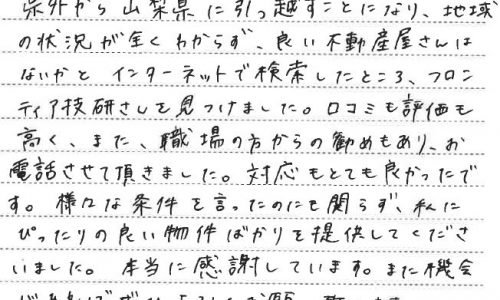 県外から山梨県に引っ越すことになり、地域
の状況が全くわからず、良い不動産屋さんは
ないかと インターネットで検索したところ、フロン
ティア技研さんを見つけました。口コミも評価も
高く、また、職場の方からの勧めもあり、お
電話させて頂きました。対応もとても良かったで
す。様々な条件を言ったのにも関らず、私に
ぴったりの良い物件ばかりを提供してくださ
いました。本当に感謝しています。また機会